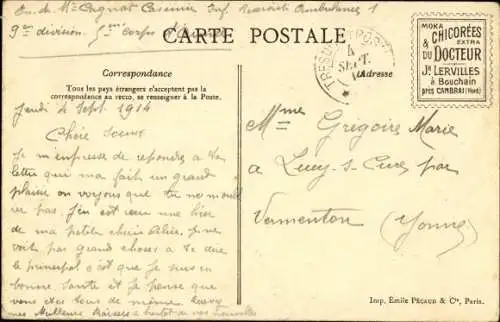 Env. de Mr Cugnot Casimir Inf. Ambulance 1
9me division, corps d'armée
CARTE POSTALE
TRÉSOR ET POSTES
4
SEPT.
MOKA
& CHICORÉES
EXTRA
DU DOCTEUR
Js LERVILLES
à Bouchain
près CAMBRAI (Nord)
Correspondance
Tous les pays étrangers n'acceptent pas la
correspondance au recto, se renseigner à la Poste.
Adresse
Jeudi 4 Sept. 1914
Chère Soeur
Je m'empresse de répondre à ta
lettre qui m'a fait un grand
plaisir en voyons que tu ne m'oubli
er pas. J'en est reçu une hier
de ma petite chérie Alice, je ne
voit pas grand choses à te dire
le principal c'est que je suis en
bonne santé et je pense que
vous êtes tous de même
mes Meilleurs Baisers a bientot de vos nouvelles
Mme Grégoire Marie
a Lucy-s-Cure par
Vermenton (Yonne)
Imp. Emile Pécaud & Cie, Paris.